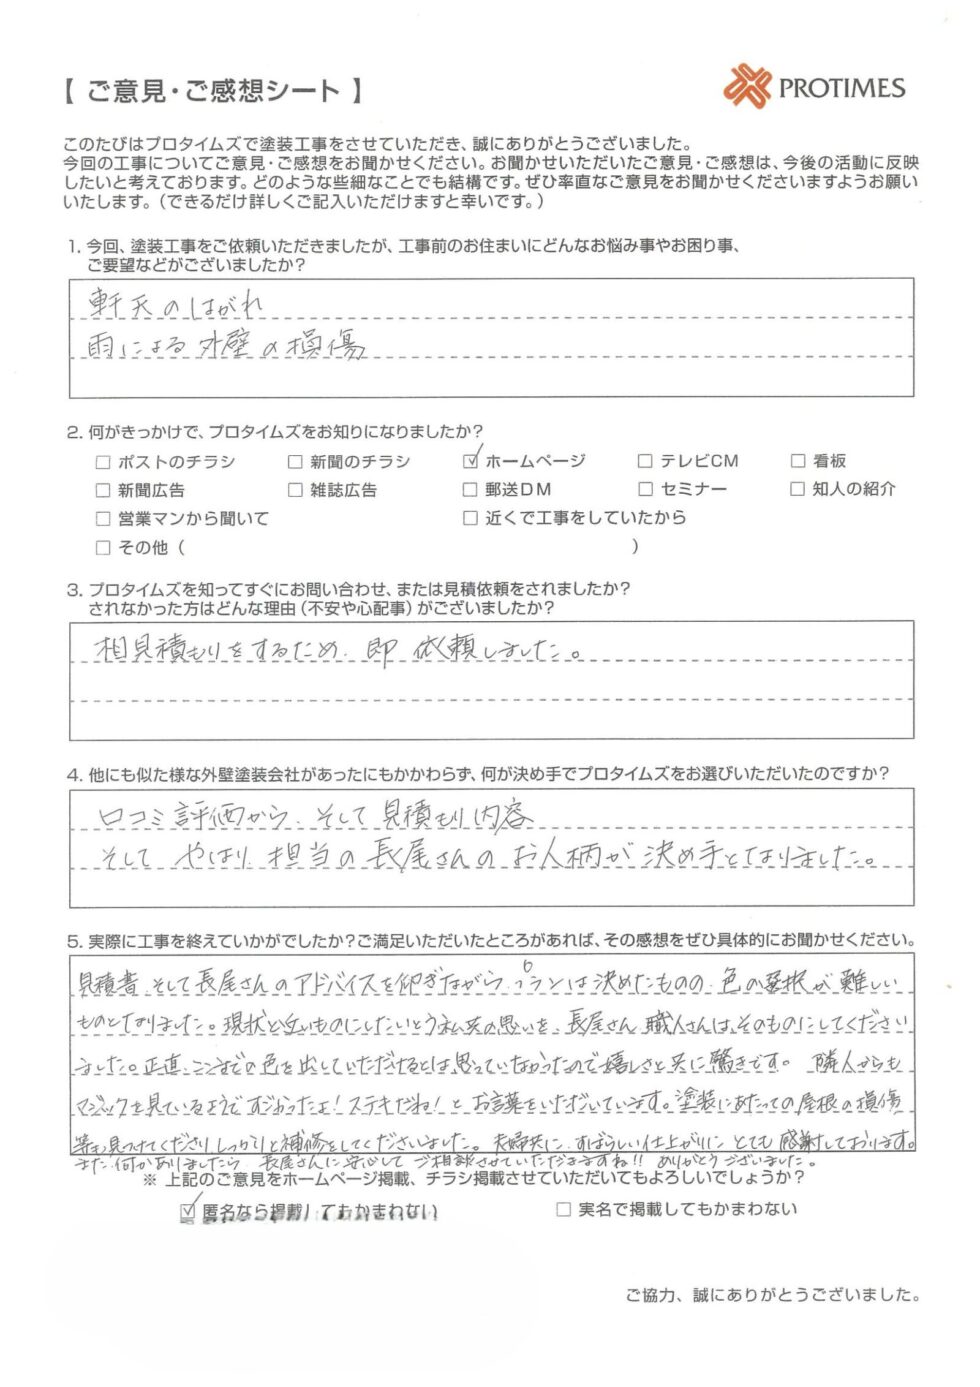 【 ご意見・ご感想シート 】
PROTIMES
このたびはプロタイムズで塗装工事をさせていただき、誠にありがとうございました。
今回の工事についてご意見・ご感想をお聞かせください。お聞かせいただいたご意見・ご感想は、今後の活動に反映
したいと考えております。どのような些細なことでも結構です。ぜひ率直なご意見をお聞かせくださいますようお願い
いたします。（できるだけ詳しくご記入いただけますと幸いです。）
1. 今回、塗装工事をご依頼いただきましたが、工事前のお住まいにどんなお悩み事やお困り事、
ご要望などがございましたか？
軒天のはがれ
雨による外壁の損傷
2. 何がきっかけで、プロタイムズをお知りになりましたか？
□ ポストのチラシ □ 新聞のチラシ ☑ ホームページ □ テレビCM □ 看板
□ 新聞広告 □ 雑誌広告 □ 郵送DM □ セミナー □ 知人の紹介
□ 営業マンから聞いて □ 近くで工事をしていたから
□ その他（ ）
3. プロタイムズを知ってすぐにお問い合わせ、または見積依頼をされましたか？
されなかった方はどんな理由（不安や心配事）がございましたか？
相見積もりをするため、即 依頼しました。
4. 他にも似た様な外壁塗装会社があったにもかかわらず、何が決め手でプロタイムズをお選びいただいたのですか？
口コミ評価から、そして見積もり内容
そして やはり、担当の長尾さんのお人柄が決め手となりました。
5. 実際に工事を終えていかがでしたか？ご満足いただいたところがあれば、その感想をぜひ具体的にお聞かせください。
見積書、そして長尾さんのアドバイスを仰ぎながら、プランは決めたものの、色の選択が難しい
ものとなりました。現状と近いものにしたいという私共の思いを、長尾さん、職人さんは、そのものにしてください
ました。正直、ここまでの色を出していただけるとは思っていなかったので嬉しさと共に驚きです。 隣人からも
マジックを見ているようですごかったよ！ステキだね！と お言葉をいただいています。塗装にあたっての屋根の損傷
等も見つけてくださり、しっかりと補修をしてくださいました。夫婦共に、すばらしい仕上がりに とても 感謝しております。
また何かありましたら、長尾さんに安心して ご相談させていただきますね!! ありがとうございました。
※ 上記のご意見をホームページ掲載、チラシ掲載させていただいてもよろしいでしょうか？
☑ 匿名なら掲載してもかまわない □ 実名で掲載してもかまわない
ご協力、誠にありがとうございました。